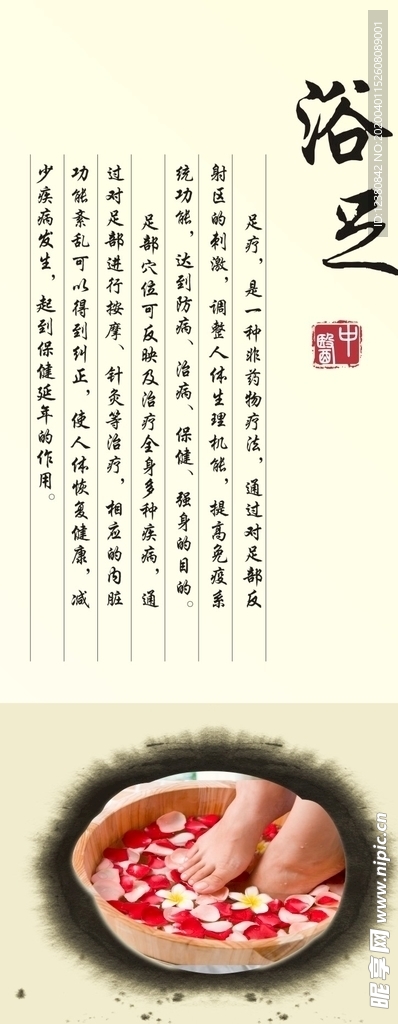 浴足
中醫
足疗，是一种非药物疗法，通过对足部反
射区的刺激，调整人体生理机能，提高免疫系
统功能，达到防病、治病、保健、强身的目的。
足部穴位可反映及治疗全身多种疾病，通
过对足部进行按摩、针灸等治疗，相应的内脏
功能紊乱可以得到纠正，使人体恢复健康，减
少疾病发生，起到保健延年的作用。
ID:12380842 NO:20200401152608089001
昵享网 www.nipic.cn